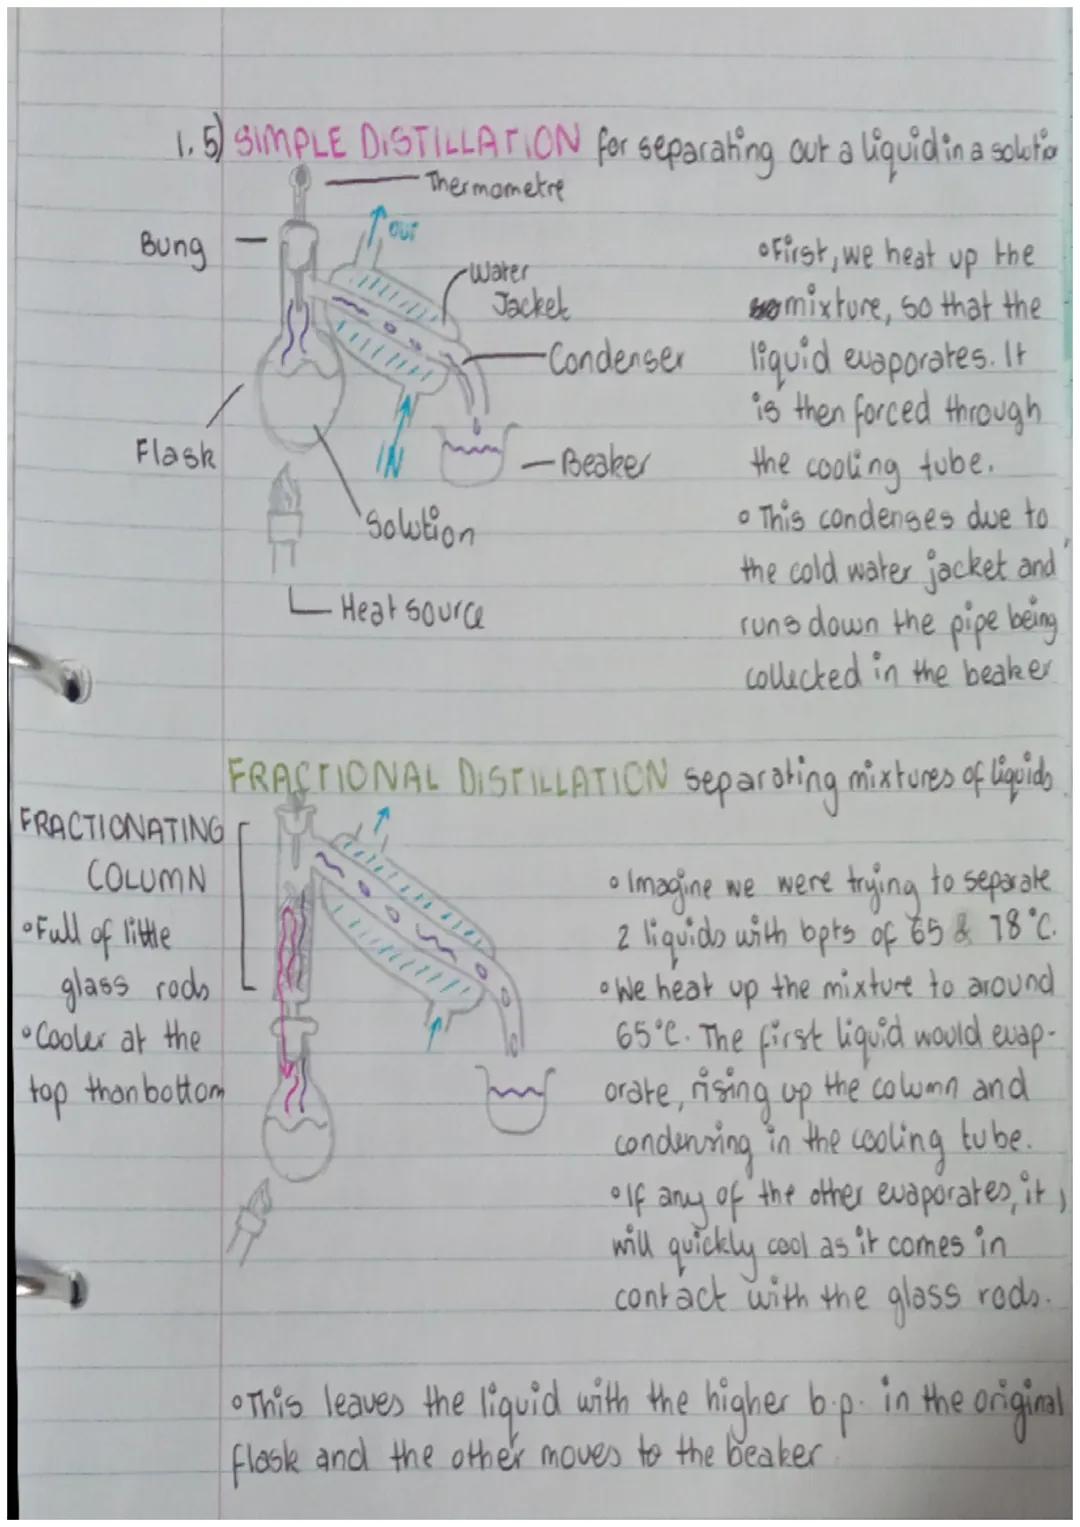 1.5) SIMPLE DISTILLATION for separating out a liquid in a solutio
Thermometre
OUT
Bung
Water
Jacket
Condenser
Flask
IN
Beaker
Solution
Heat source
◦ First, we heat up the
mixture, so that the
liquid evaporates. It
is then forced through
the cooling tube.
◦ This condenses due to
the cold water jacket and
runs down the pipe being
collected in the beaker
FRACTIONAL DISTILLATION separating mixtures of liquids
FRACTIONATING
COLUMN
◦ Full of little
glass rods
◦ Cooler at the
top than bottom
◦ Imagine we were trying to separate
2 liquids with bpts of 65 & 78°C.
◦ We heat up the mixture to around
65°C. The first liquid would evap-
orate, rising up the column and
condensing in the cooling tube.
◦ If any of the other evaporates, it
will quickly cool as it comes in
contact with the glass rods.
◦ This leaves the liquid with the higher b.p. in the original
flask and the other moves to the beaker